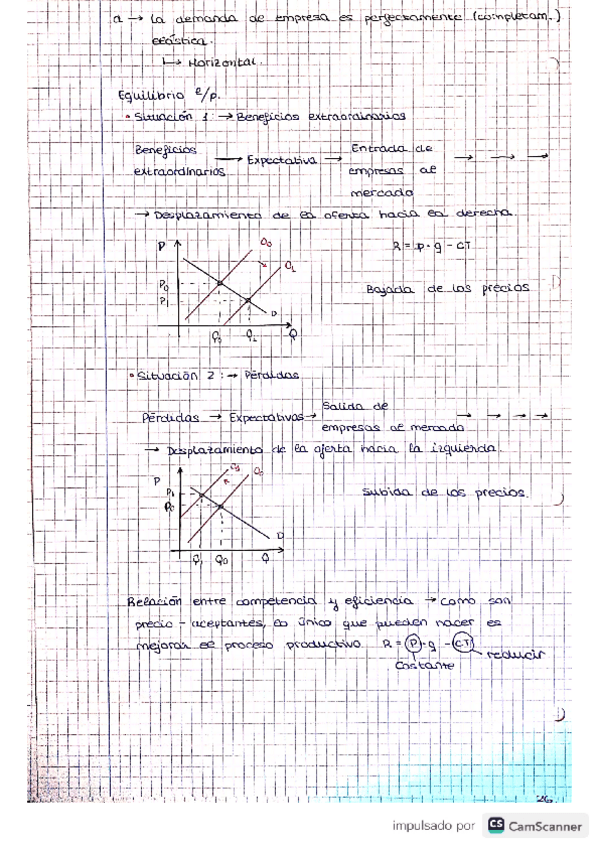 a → la demanda de empresa es perfectamente (completam.)
elástica.
↳ Horizontal.
Equilibrio e/p.
• Situación 1: → Beneficios extraordinarios
Beneficios extraordinarios → Expectativa → Entrada de empresas al mercado → → →
→ Desplazamiento de la oferta hacia la derecha.
P O0 O1
R = p · q - CT
P0
P1
Bajada de los precios
D
Q0 Q1 Q
• Situación 2: → Pérdidas
Pérdidas → Expectativas → Salida de empresas al mercado → → → →
→ Desplazamiento de la oferta hacia la izquierda.
P O1 O0
P1
P0
Subida de los precios.
D
Q1 Q0 Q
Relación entre competencia y eficiencia → como son
precio-aceptantes, lo único que pueden hacer es
mejorar el proceso productivo. R = P · q - CT reducir
Constante
26
impulsado por CS CamScanner